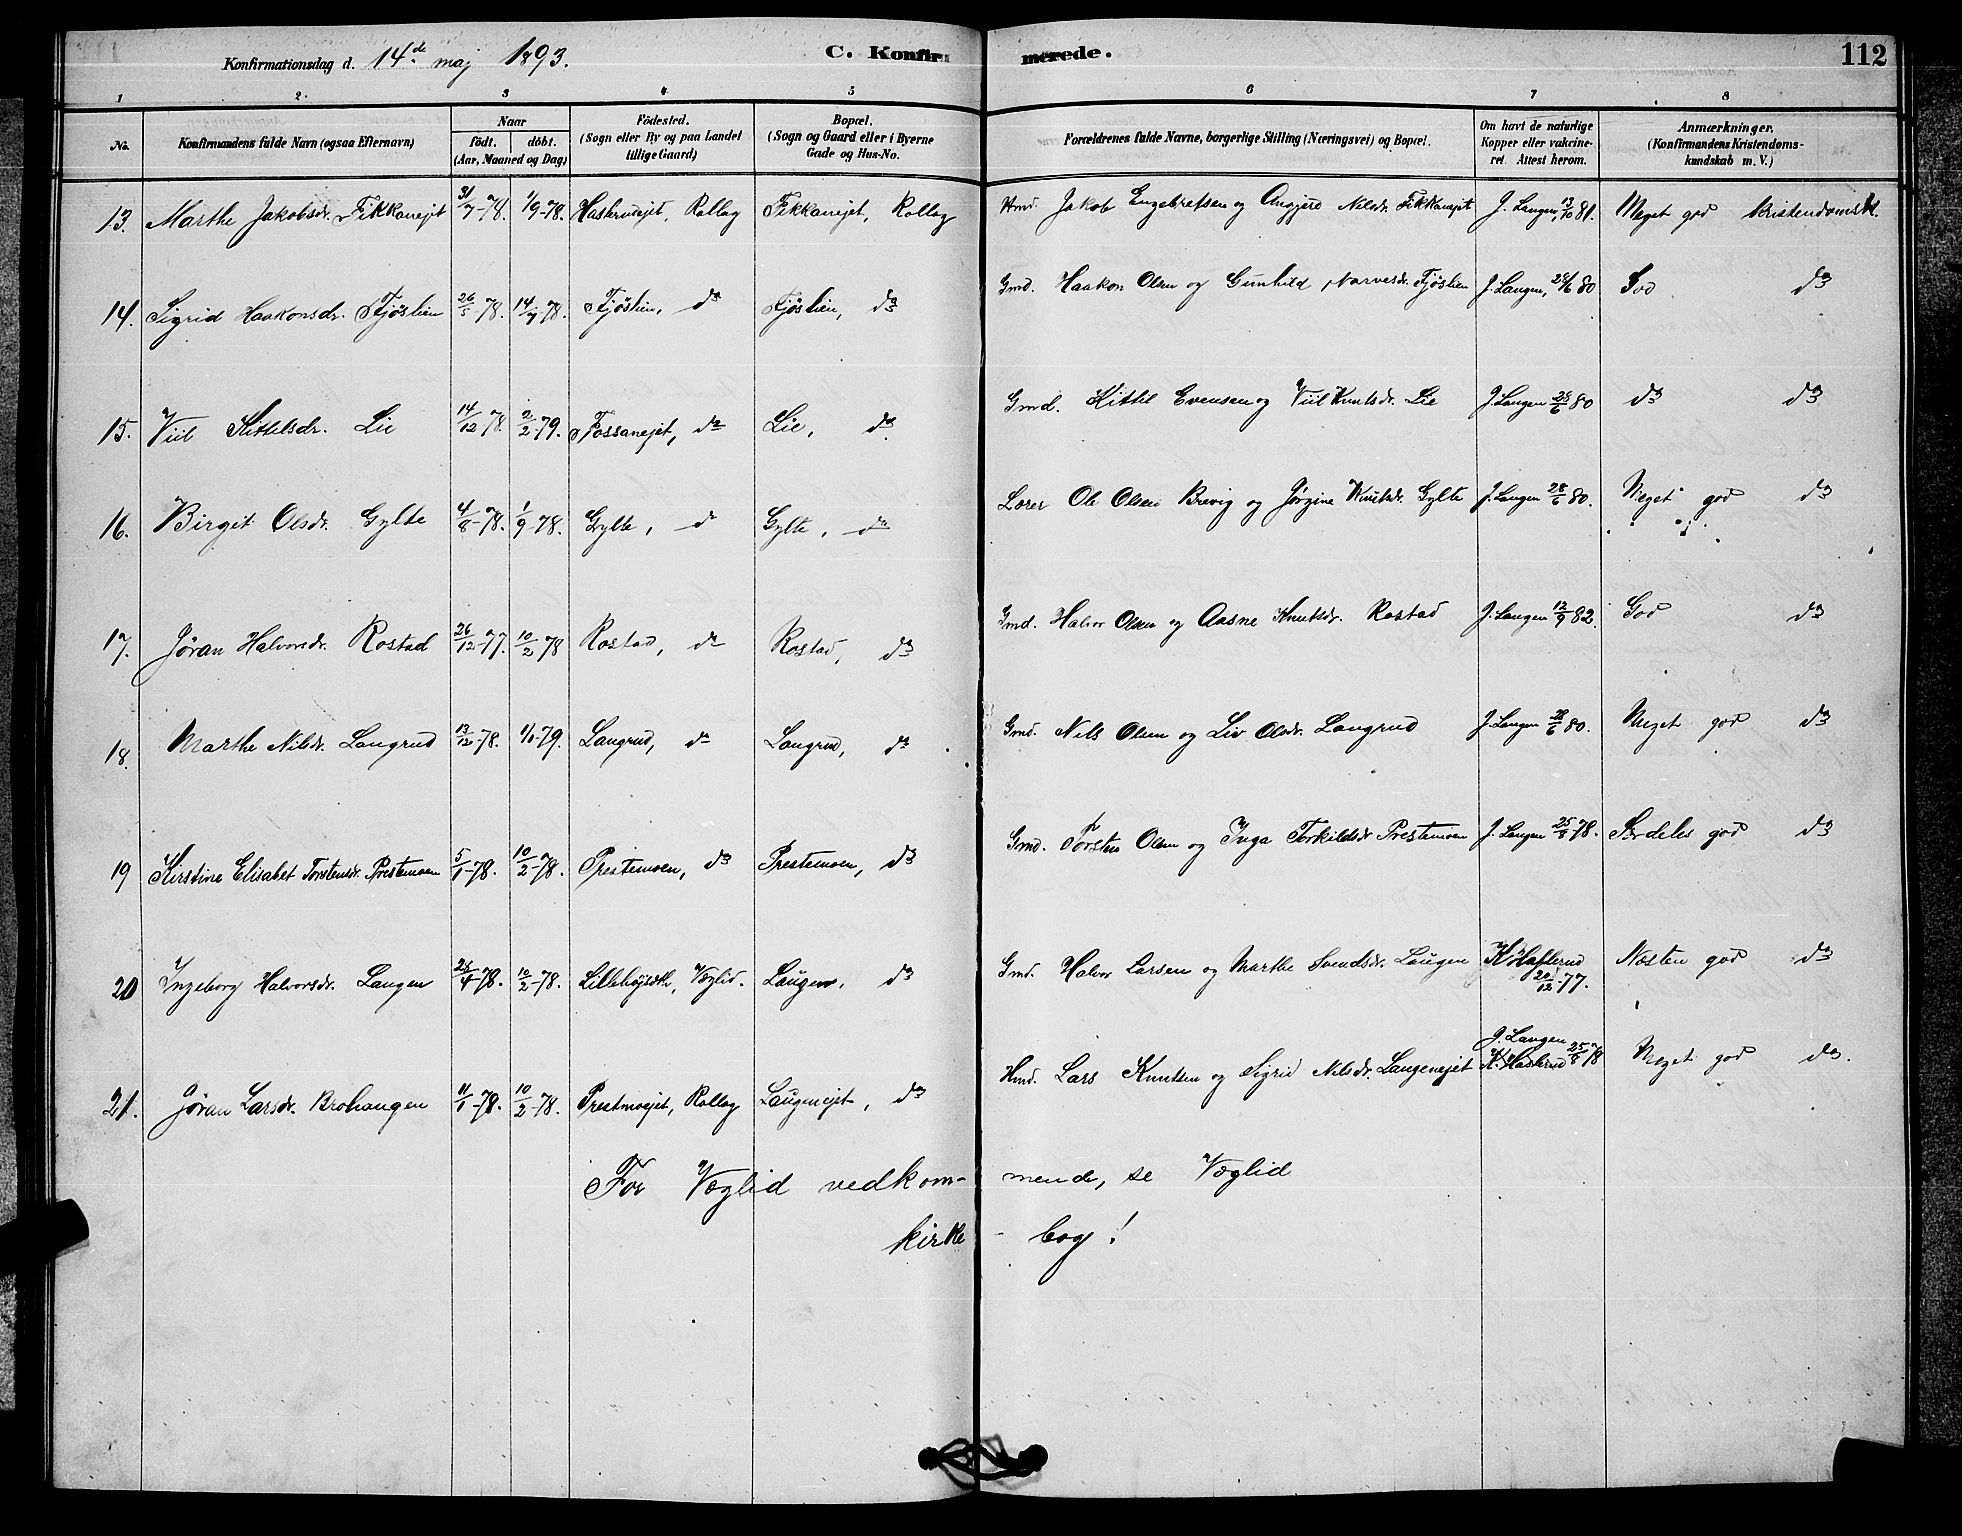 Konfirmationsdag d. 14de maj 1893. C. Konfirmerede. 112
1 2 3 4 5 6 7 8
No. Konfirmandens fulde Navn (ogsaa Efternavn) Naar født. døbt. (Aar, Maaned og Dag) Fødested. (Sogn eller By og paa Landet tillige Gaard) Bopæl. (Sogn og Gaard eller i Byerne Gade og Hus-No. Forældrenes fulde Navne, borgerlige Stilling (Næringsvei) og Bopæl. Om havt de naturlige Kopper eller vakcineret. Attest herom. Anmærkninger. (Konfirmandens Kristendomskundskab m. V.)
13. Marthe Jakobsdr. Fikkanejet 31/7-78. 1/9-78. Haslerudejet, Rollag Fikkanejet, Rollag Hmd. Jakob Engebretsen og Nilsdr. Fikkanejet J. Langen, 13/10 81. Meget god kristendomsk.
14. Sigrid Haakonsdr. Fjøslien 26/5-78. 14/7-78. Fjøslien, do Fjøslien, do Gmd. Haakon Olsen og Gunhild Narvesdr. Fjøslien J. Langen, 28/6 80 God do
15. Viil Kittelsdr. Lie 14/12 78. 2/2-79. Fossanejet, do Lie, do Gmd. Kittil Evensen og Viil Knutsdr. Lie J. Langen 28/6 80 do do
16. Birgit Olsdr. Gylte 4/8-78. 1/9-78. Gylte, do Gylte, do Lærer Ole Olsen Brevig og Jørgine Knutsdr. Gylte J. Langen 28/6 80. Meget god do
17. Jøran Halvorsdr. Rostad 26/12-77. 10/2-78 Rostad, do Rostad, do Gmd. Halvor Olsen og Aasne Knutsdr. Rostad J. Langen 12/9 82. God do
18. Marthe Nilsdr. Langrud 13/12-78. 1/1-79. Langrud, do Langrud, do Gmd. Nils Olsen og Liv Olsdr. Langrud J. Langen 28/6 80. Meget god do
19 Kirstine Elisabet Torstensdr. Prestemoen 5/1-78. 10/2-78. Prestemoen, do Prestemoen, do Gmd. Torsten Olsen og Inga Torkildsdr Prestemoen J. Langen 25/8 78. Særdeles god do
20 Ingeborg Halvorsdr. Langen 10/2-78. Væglid. Laugen, do Gmd. Halvor Larsen og Marthe Svendsdr. Laugen 20/12-77. Næsten god do
21. Jøran Larsdr. Brohaugen 11/1-78. 10/2-78. Prestmoejet, Rollag Laugenejet, do Hmd. Lars Knutsen og Sigrid Nilsdr. Langenejet J. Langen K. Haslerud 25/8 78 Meget god do.
For Væglid vedkommende, se Væglid
kirke-bog!